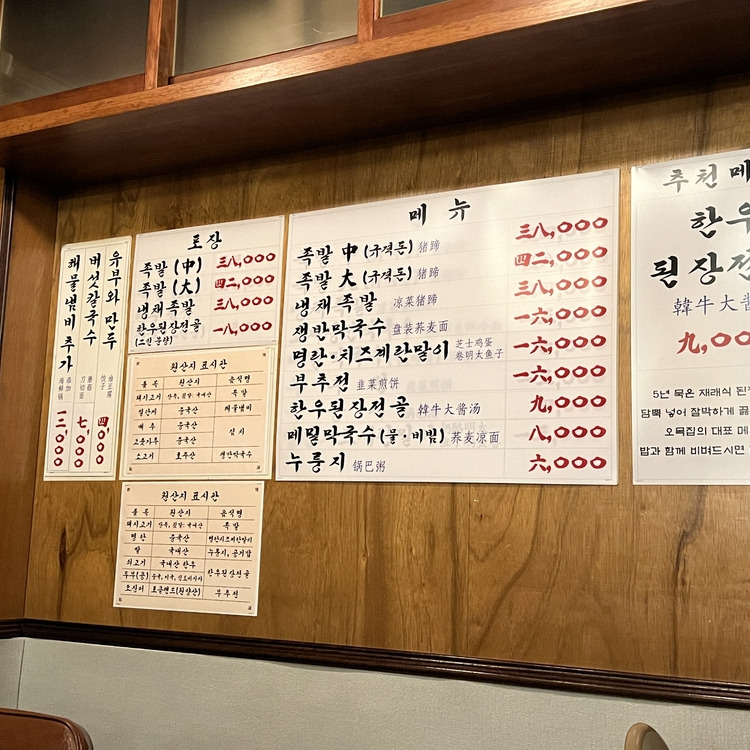 유부와 만두
버섯칼국수
해물냄비추가
油豆腐
饺子
蘑菇
刀切面
添加
海鲜锅
四'000
七'000
一二'000
포장
족발 (中) 三八,000
족발 (大) 四二,000
냉채족발 三八,000
한우된장전골 一八,000
(二인 분량)
원산지 표시판
품목 원산지 음식명
돼지고기 족발
중국산 해물냄비
배추 중국산 김치
고춧가루 중국산
소고기 호주산 쟁반막국수
원산지 표시판
품목 원산지 음식명
돼지고기 국내산 족발
명란 중국산 명란치즈계란말이
쌀 국내산 누룽지, 공기밥
쇠고기 국내산 한우 한우된장전골
두부(콩)
오징어 (원양산) 부추전
메뉴
족발 中 (규격돈) 猪蹄 三八,000
족발 大 (규격돈) 猪蹄 四二,000
냉채족발 凉菜猪蹄 三八,000
쟁반막국수 盘装荞麦面 一六,000
명란·치즈계란말이 芝士鸡蛋 卷明太鱼子 一六,000
부추전 韭菜煎饼 一六,000
한우된장전골 韓牛大醬汤 九,000
메밀막국수(물·비빔) 荞麦凉面 八,000
누룽지 锅巴粥 六,000
추천메
한우
된장전
韓牛大醬
九,00
5년 묵은 재래식 된
담뿍 넣어 잘박하게 끓
오목집의 대표 메
밥과 함께 비벼드시면